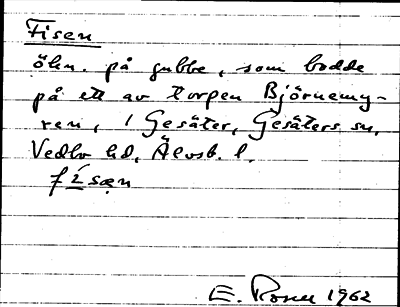 Fisen
ökn. på gubbe, som bodde
på ett av torpen Björnemy-
ren, i Gesäter, Gesäters sn,
Vedbo hd, Älvsb. l.
físæn
E. Rosell 1962